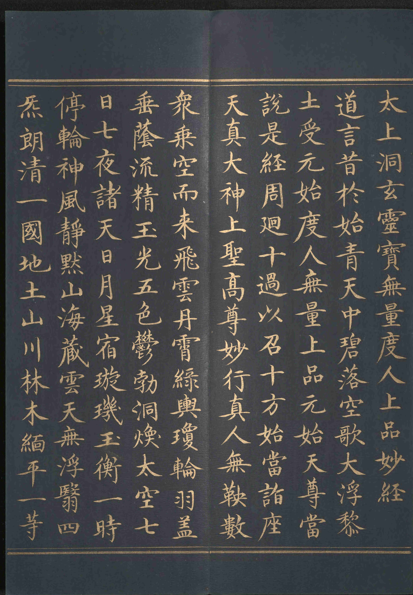 太上洞玄靈寶無量度人上品妙經
道言昔於始青天中碧落空歌大浮黎
土受元始度人無量上品元始天尊當
說是經周廻十過以召十方始當詣座
天真大神上聖髙尊妙行真人無鞅數
衆乗空而来飛雲丹霄綠輿瓊輪羽盖
垂蔭流精玉光五色鬱勃洞煥太空七
日七夜諸天日月星宿璇璣玉衡一時
停輪神風靜默山海藏雲天無浮翳四
炁朗清一國地土山川林木緬平一等